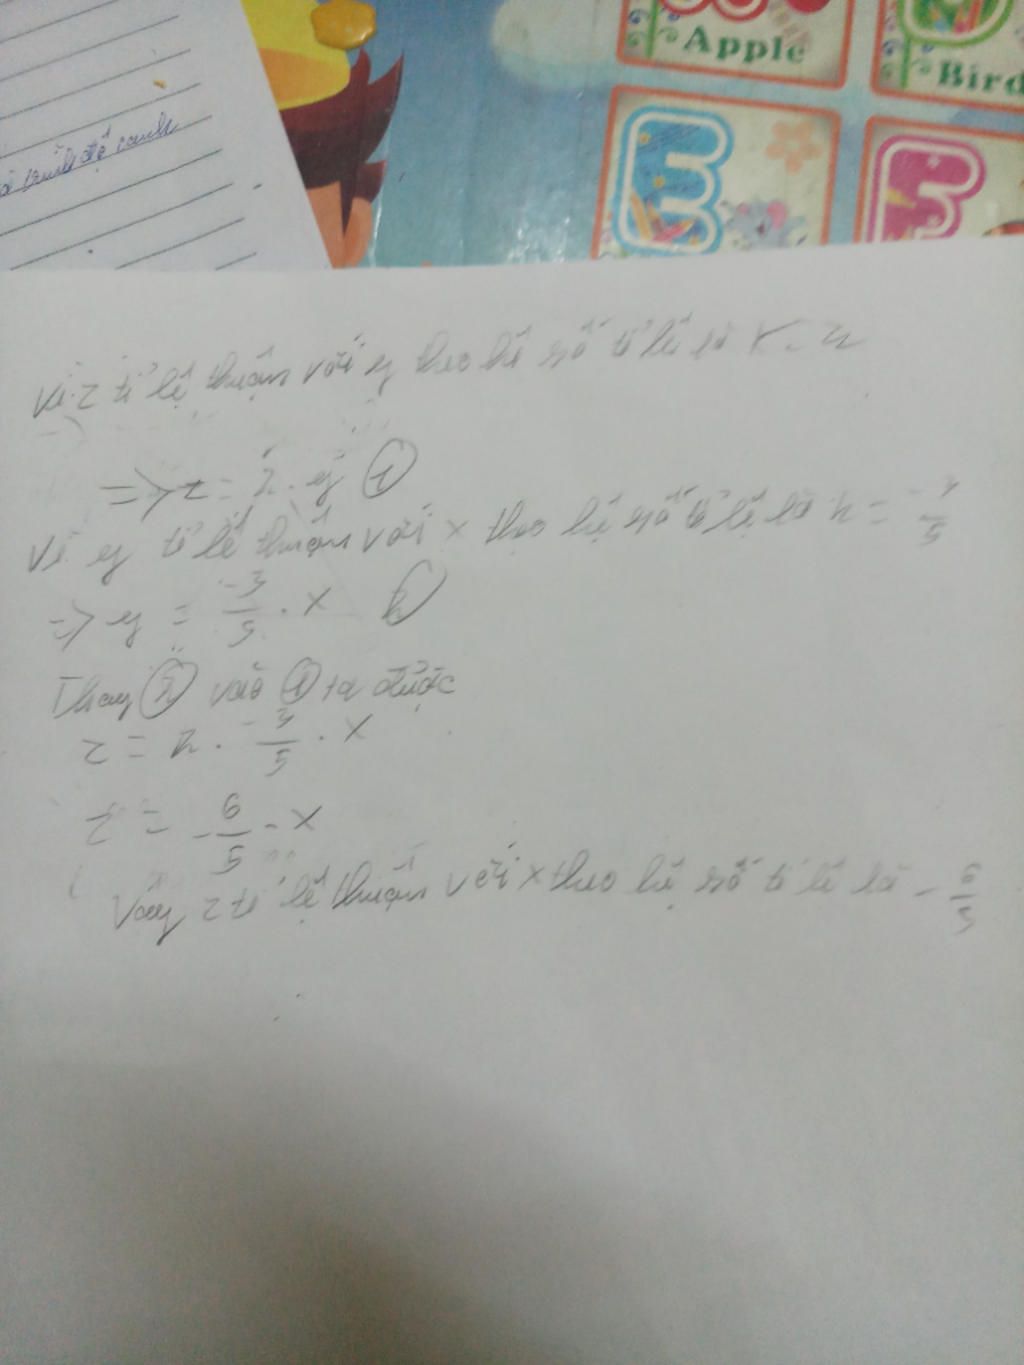 Apple
Bird
cảnh
Vì z tỉ lệ thuận với y theo hệ số tỉ lệ là k = 2
=> z = 2 . y ①
Vì y tỉ lệ thuận với x theo hệ số tỉ lệ là h = -3/5
=> y = -3/5 . x ②
Thay ② vào ① ta được
z = 2 . -3/5 . x
z = -6/5 . x
Vậy z tỉ lệ thuận với x theo hệ số tỉ lệ là -6/5